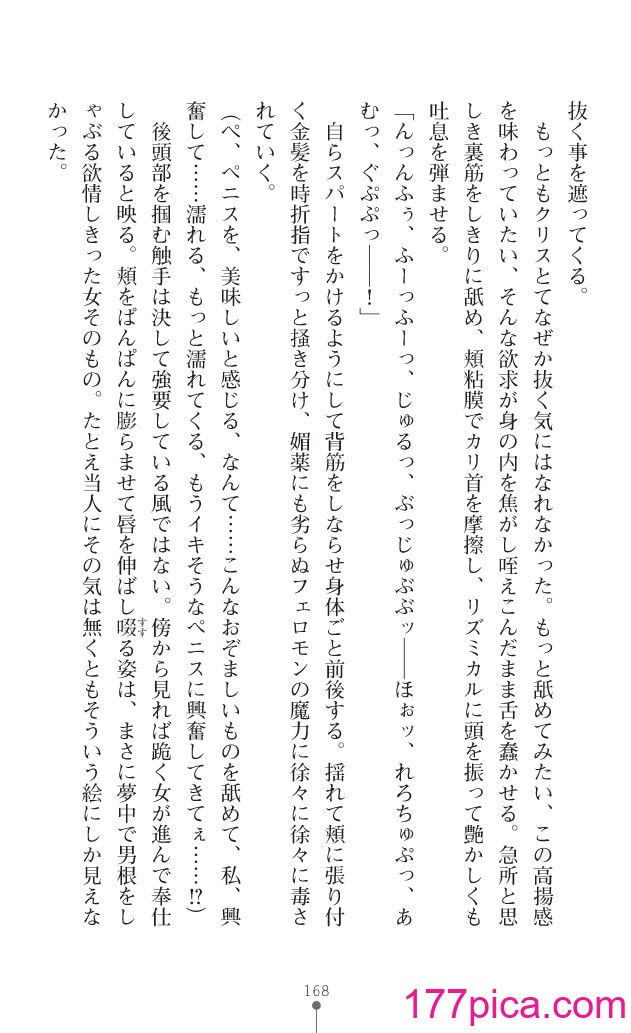 抜く事を遮ってくる。
もっともクリスとてなぜか抜く気にはなれなかった。もっと舐めてみたい、この高揚感
を味わっていたい、そんな欲求が身の内を焦がし咥えこんだまま舌を蠢かせる。急所と思
しき裏筋をしきりに舐め、頬粘膜でカリ首を摩擦し、リズミカルに頭を振って艶かしくも
吐息を弾ませる。
「んっんふぅ、ふーっふーっ、じゅるっ、ぶっじゅぶぶッ――ほぉッ、れろちゅぷっ、あ
むっ、ぐぷぷっ――！」
自らスパートをかけるようにして背筋をしならせ身体ごと前後する。揺れて頬に張り付
く金髪を時折指ですっと掻き分け、媚薬にも劣らぬフェロモンの魔力に徐々に徐々に毒さ
れていく。
（ペ、ペニスを、美味しいと感じる、なんて……こんなおぞましいものを舐めて、私、興
奮して……濡れる、もっと濡れてくる、もうイキそうなペニスに興奮してきてぇ……⁉）
後頭部を掴む触手は決して強要している風ではない。傍から見れば跪く女が進んで奉仕
していると映る。頬をぱんぱんに膨らませて唇を伸ばし啜る姿は、まさに夢中で男根をし
すす
ゃぶる欲情しきった女そのもの。たとえ当人にその気は無くともそういう絵にしか見えな
かった。
168
177pica.com